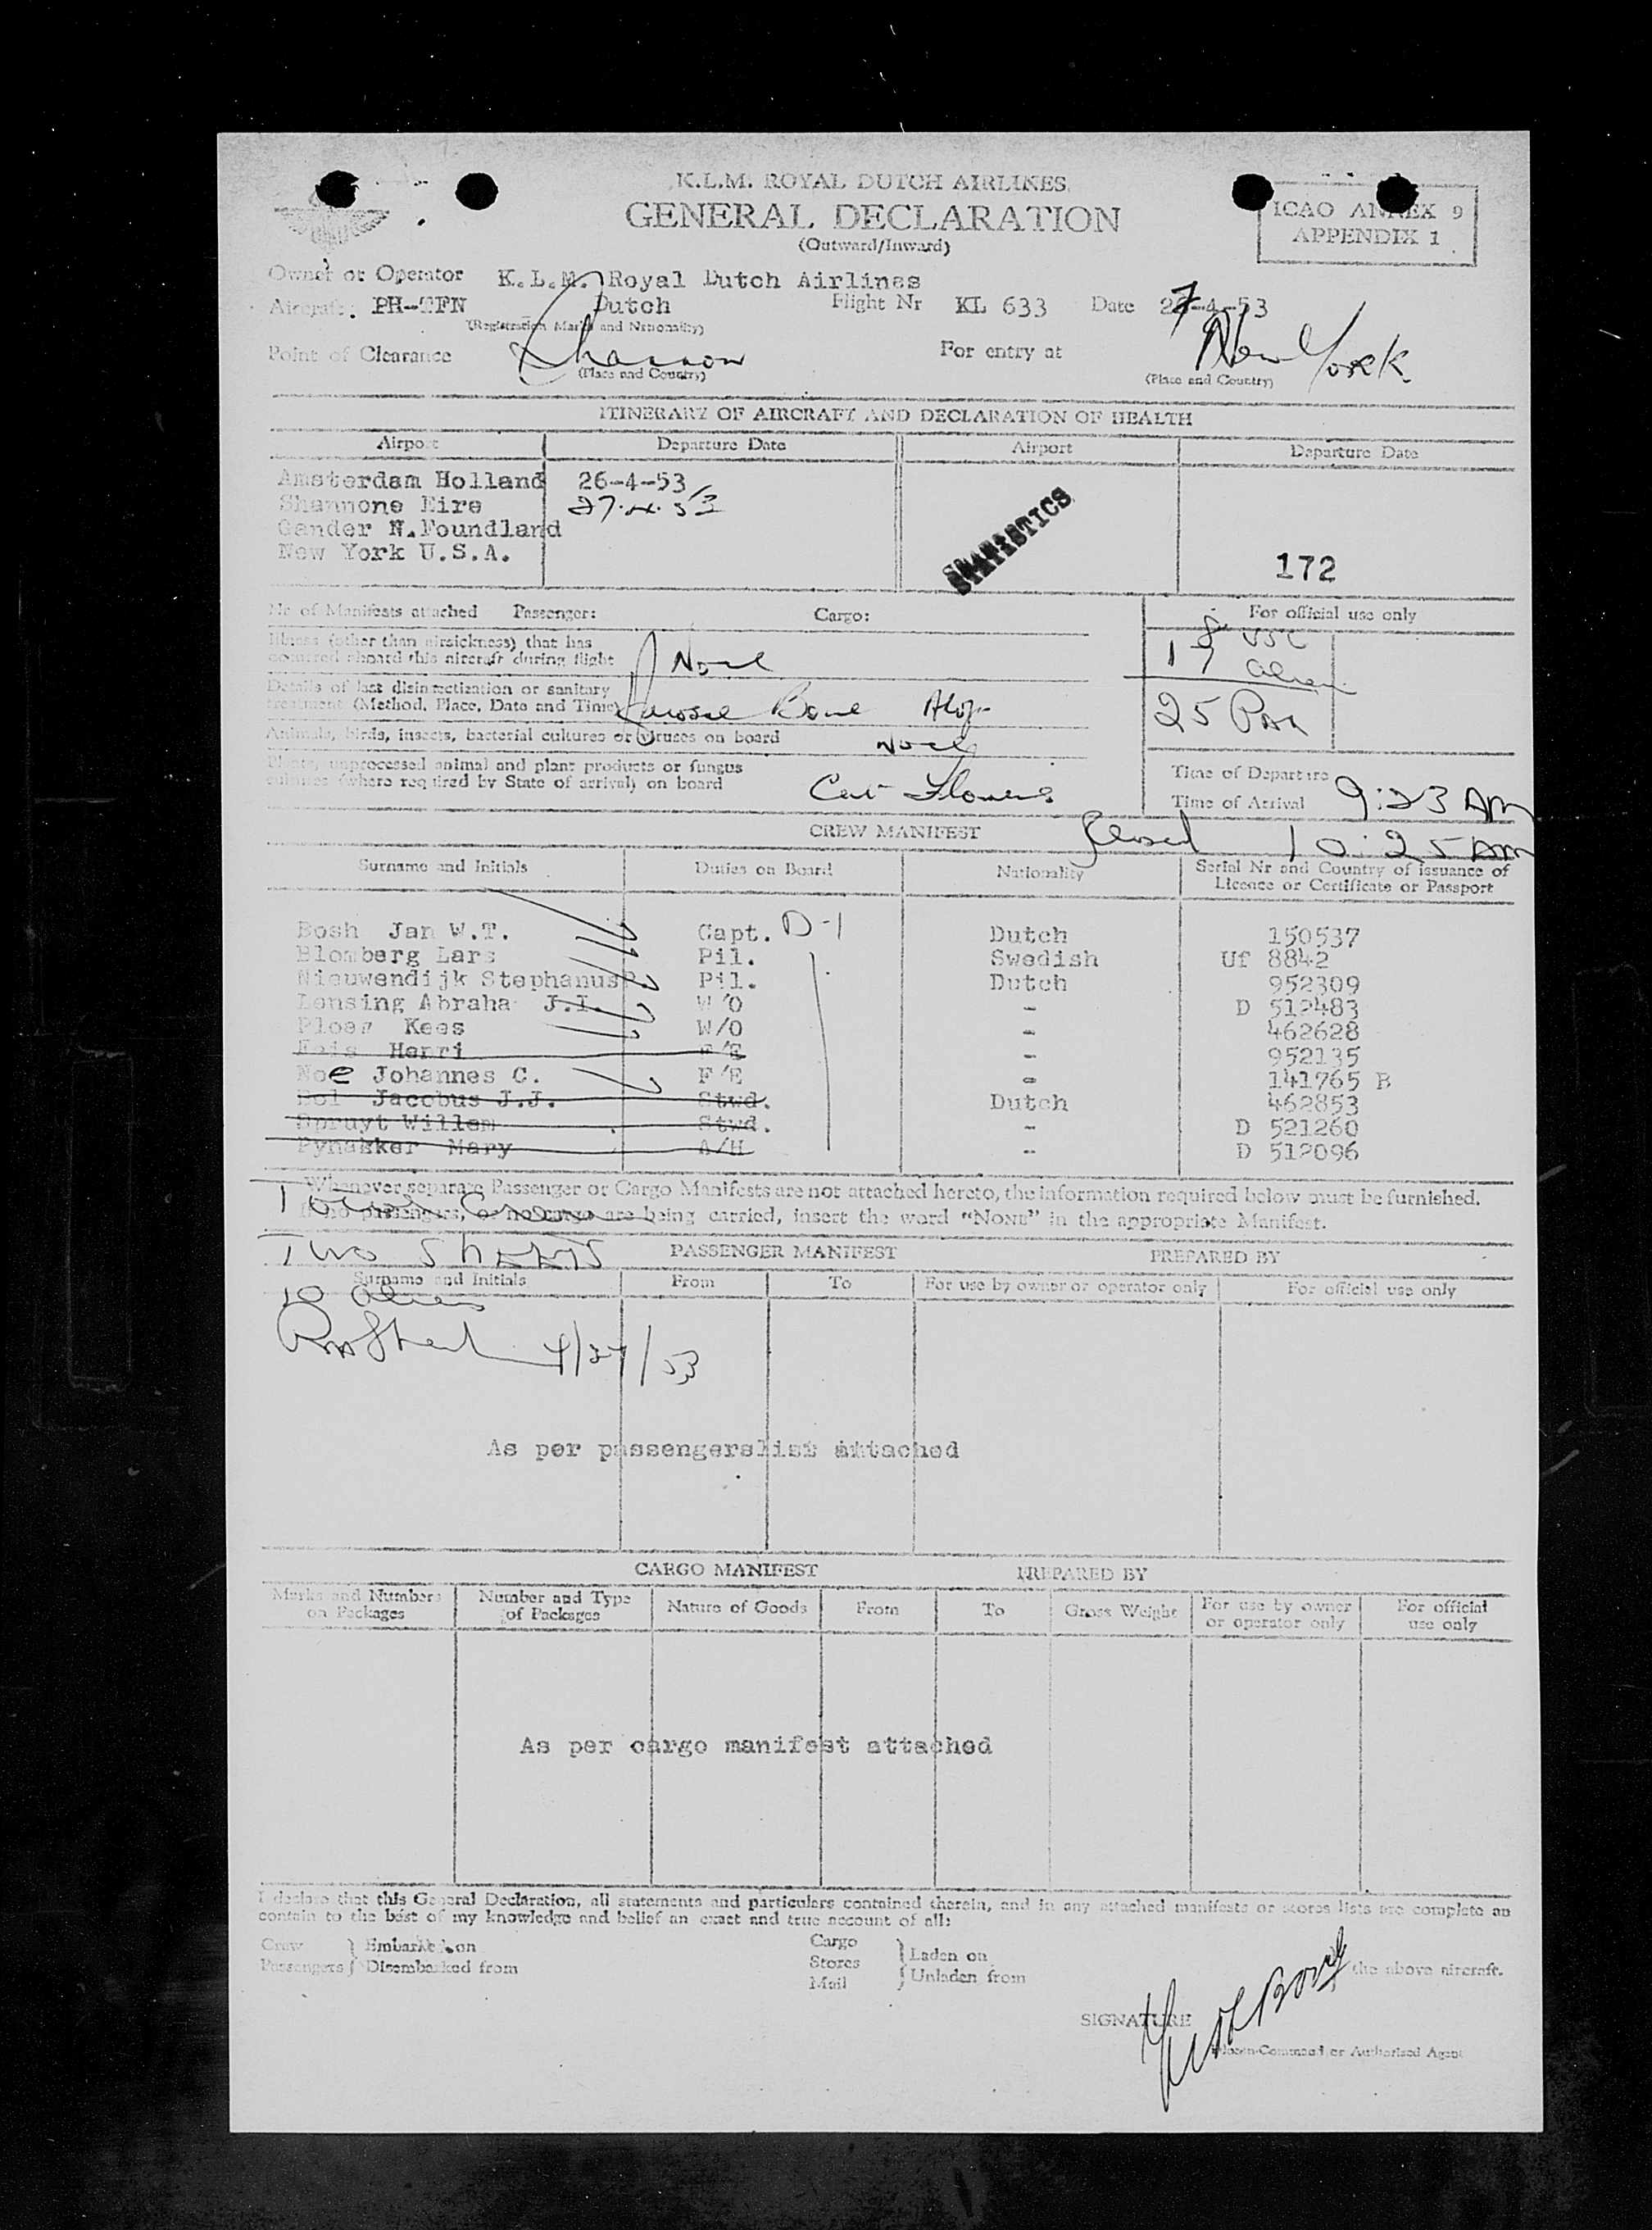 K.L.M. ROYAL DUTCH AIRLINES
GENERAL DECLARATION
(Outward/Inward)
ICAO ANNEX 9
APPENDIX 1
Owner or Operator K.L.M. Royal Dutch Airlines
Aircraft: PH-TFN Dutch Flight Nr KL 633 Date 27-4-53
(Registration Marks and Nationality)
Point of Clearance Shannon For entry at New York
(Place and Country) (Place and Country)
ITINERARY OF AIRCRAFT AND DECLARATION OF HEALTH
Airport Departure Date Airport Departure Date
Amsterdam Holland 26-4-53
Shannone Eire 27.4.53
Gander N.Foundland
New York U.S.A.
STATISTICS
172
Nr of Manifests attached Passenger: Cargo: For official use only
Illness (other than airsickness) that has
occurred aboard this aircraft during flight None
8 USC
17 Alien
25 Pax
Details of last disinsectization or sanitary
treatment (Method, Place, Date and Time) Aerosol Bomb
Animals, birds, insects, bacterial cultures or viruses on board None
Plants, unprocessed animal and plant products or fungus
cultures (where required by State of arrival) on board Cut Flowers
Time of Departure
Time of Arrival 9:23 AM
CREW MANIFEST
10:25 AM
Surname and Initials Duties on Board Nationality Serial Nr and Country of issuance of
Licence or Certificate or Passport
Bosh Jan W.T. Capt. D-1 Dutch 150537
Blomberg Lars Pil. Swedish Uf 8842
Nieuwendijk Stephanus Pil. Dutch 952309
Lensing Abraha J.I. W/O - D 512483
Ploeg Kees W/O - 462628
Henri F/E - 952135
Noe Johannes C. F/E - 141765 B
Bol Jacobus J.J. Stwd. Dutch 462853
Spruyt Willem Stwd. - D 521260
Pynakker Mary A/H - D 512096
Whenever separate Passenger or Cargo Manifests are not attached hereto, the information required below must be furnished.
If no passengers, or no cargo are being carried, insert the word “NONE” in the appropriate Manifest.
TWO SHEETS
PASSENGER MANIFEST PREPARED BY
Surname and Initials From To For use by owner or operator only For official use only
4/27/53
As per passengerslist attached
CARGO MANIFEST PREPARED BY
Marks and Numbers on Packages Number and Type of Packages Nature of Goods From To Gross Weight For use by owner or operator only For official use only
As per cargo manifest attached
I declare that this General Declaration, all statements and particulars contained therein, and in any attached manifests or stores lists are complete an
contain to the best of my knowledge and belief an exact and true account of all:
Crew } Embarked on
Passengers } Disembarked from
Cargo
Stores } Laden on
Mail } Unladen from
the above aircraft.
SIGNATURE
Pilot-in-Command or Authorised Agent